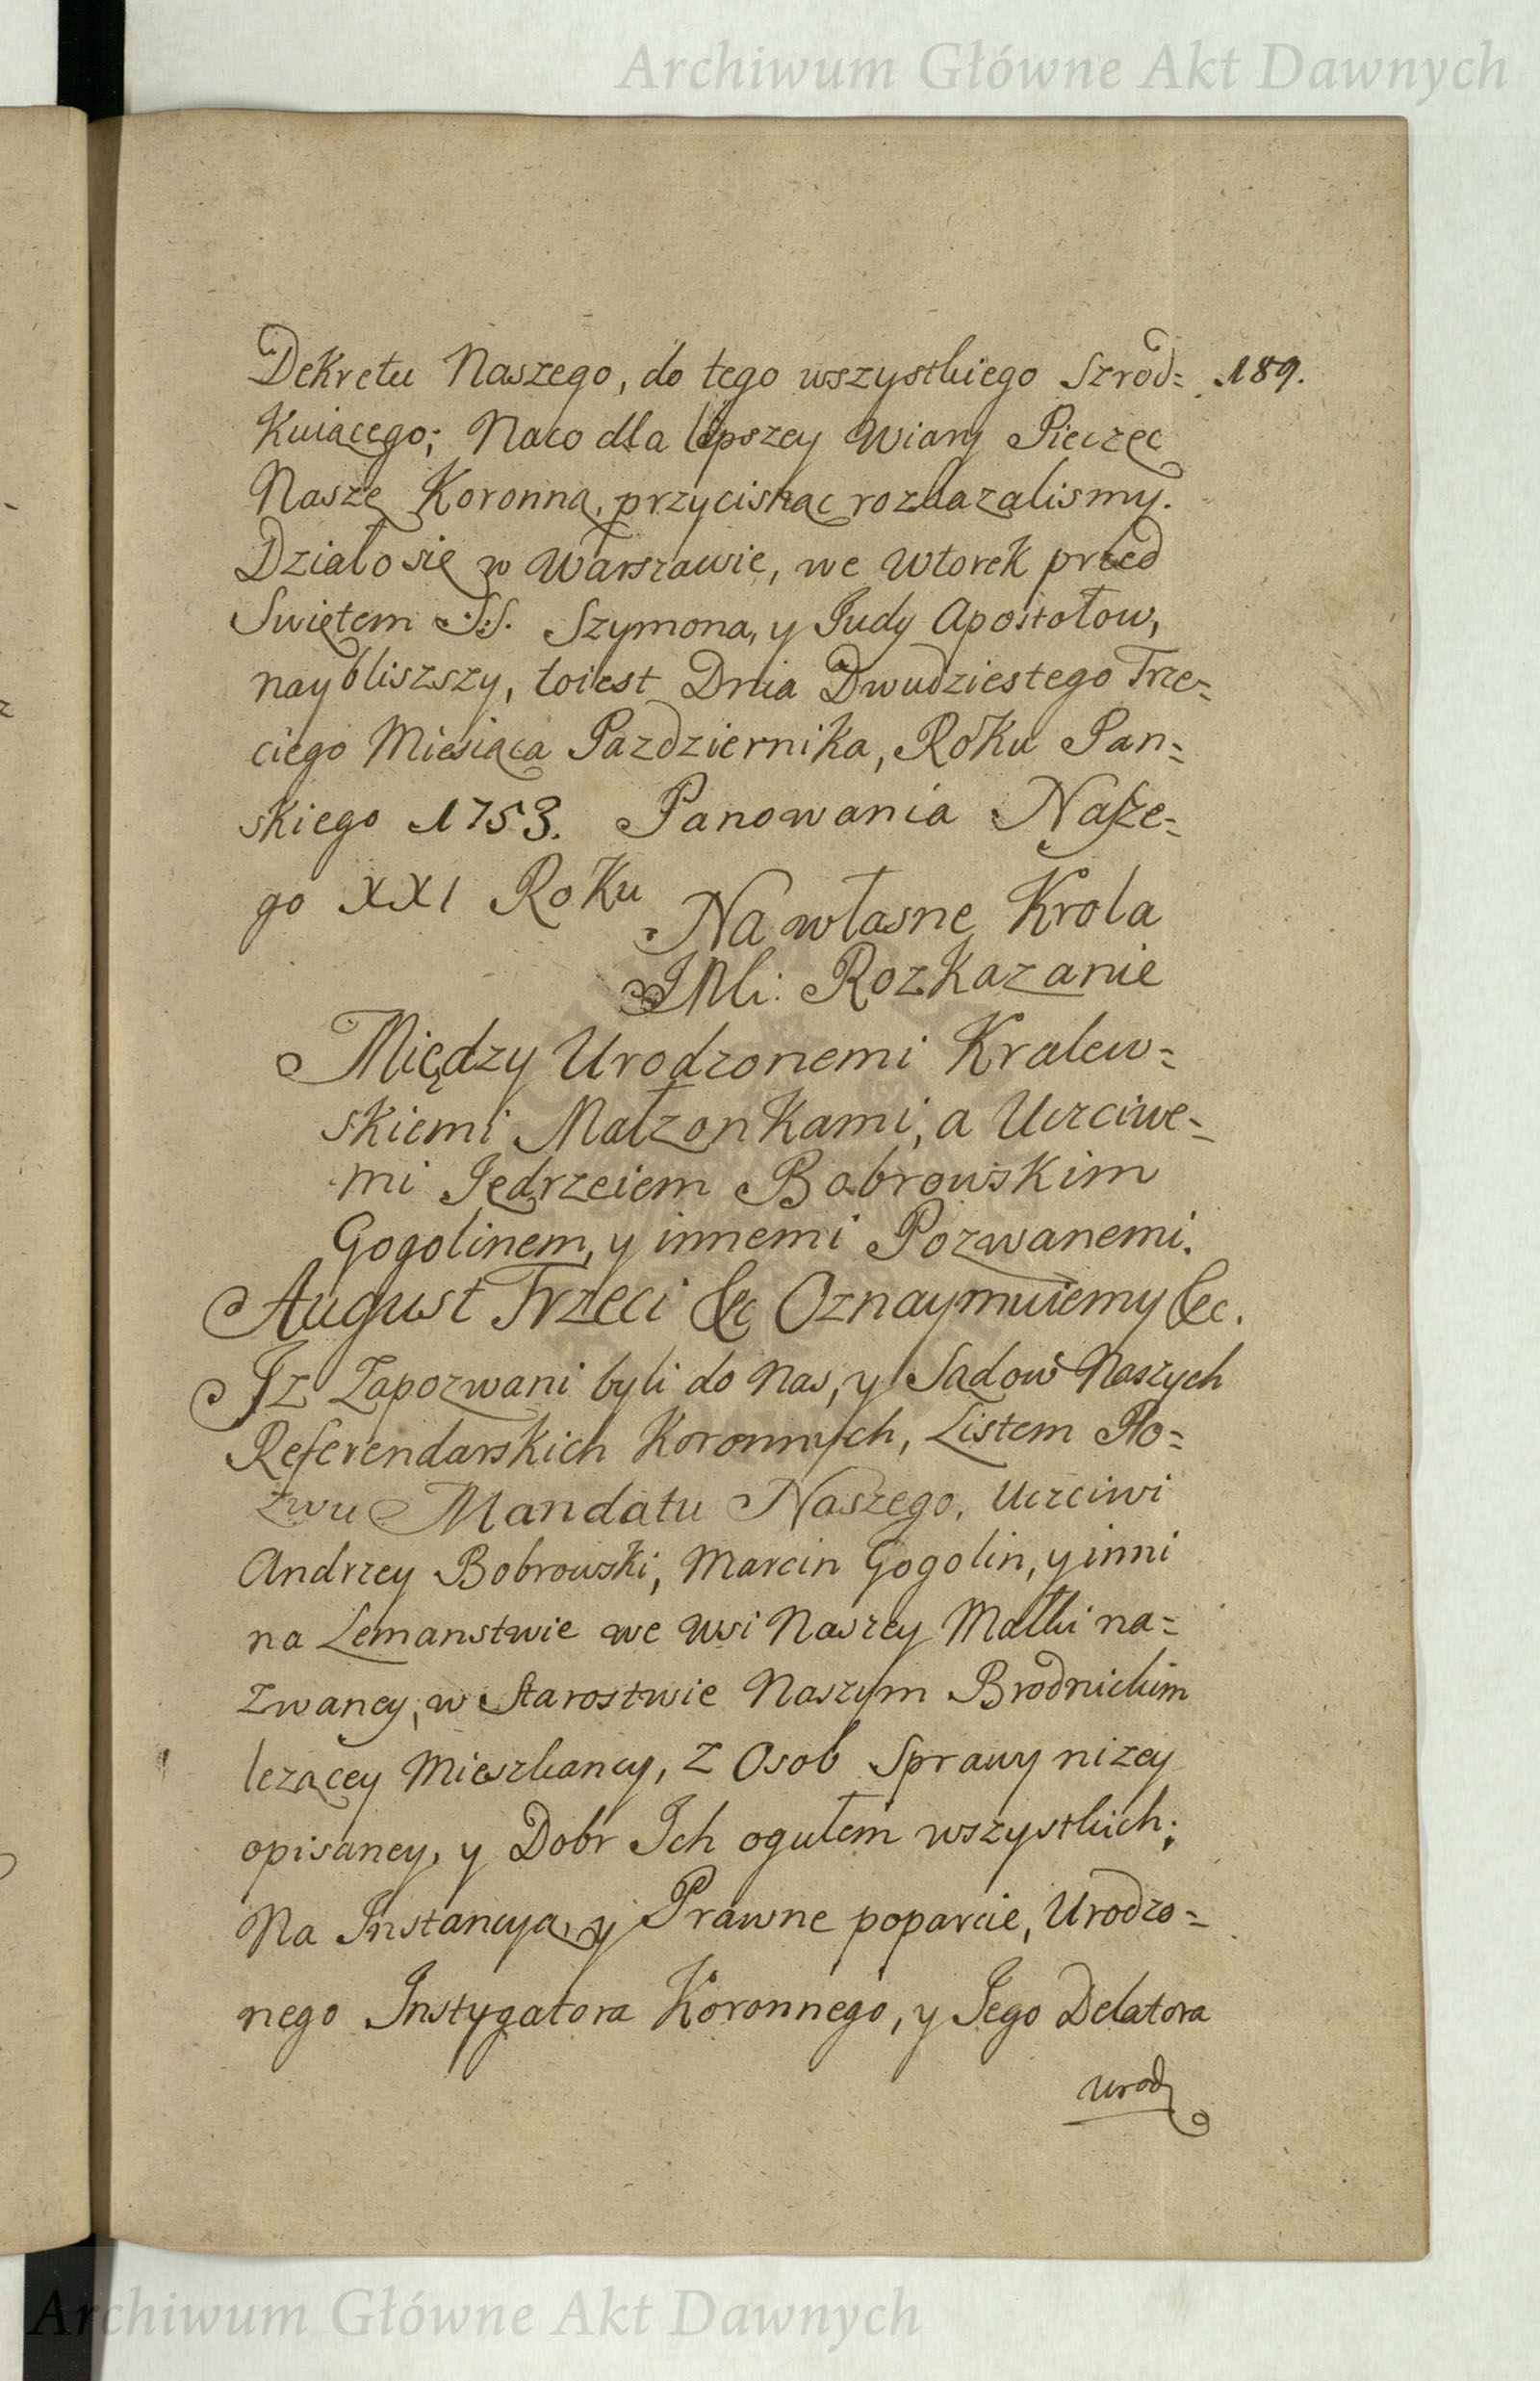 Archiwum Główne Akt Dawnych
Dekretu Naszego, do tego wszystkiego Szrod= 189.
Kuiącego; Naco dla lepszey Wiary Pieczęc
Naszę Koronną, przyciskac rozkazalismy.
Działo się w Warszawie, we Wtorek przed
Swiętem SS. Szymona, y Judy Apostołow,
naybliszszy, toiest Dnia Dwudziestego Trze=
ciego Miesiąca Pazdziernika, Roku Pan=
skiego 1753. Panowania Nasze=
go XXI Roku
Na własne Krola
JMci: Rozkazanie
Między Urodzonemi Kralew=
skiemi Małzonkami, a Uczciwe=
mi Jędrzeiem Bobrowskim
Gogolinem, y innemi Pozwanemi.
August Trzeci &c Oznaymuiemy &c.
Jz Zapozwani byli do Nas, y Sądow Naszych
Referendarskich Koronnych, Listem Po=
zwu Mandatu Naszego, Uczciwi
Andrzey Bobrowski, Marcin Gogolin, y inni
na Lemanstwie we Wsi Naszey Małki na=
zwaney, w Starostwie Naszym Brodnickim
lezącey Mieszkancy, z Osob Sprawy nizey
opisaney, y Dobr Ich ogułem wszystkich;
Na Instancyą, y Prawne poparcie, Urodzo=
nego Instygatora Koronnego, y Jego Delatora
Urodz
Archiwum Główne Akt Dawnych